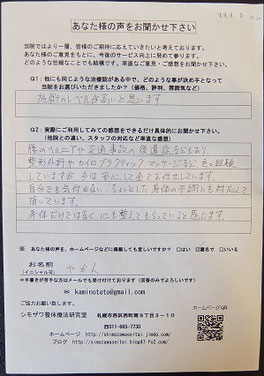 あなた様の声をお聞かせ下さい
当院ではより一層、皆様のご期待に応えていきたいと考えております。
あなた様のご意見をもとに、今後のサービス向上に努めて参ります。
どのような些細なことでも結構です、率直なご意見・ご感想をお聞かせ下さい。
Q1:他にも同じような治療院がある中で、どのような事が決め手となって
当院をお選びいただきましたか?(価格、評判、雰囲気など)
施術のレベルが高いと思います
Q2:実際にご利用してみての感想をできるだけ具体的にお聞かせ下さい。
(他院との違い、スタッフの対応など率直なご感想)
腰のヘルニアや交通事故の後遺症などもあり
整形外科やカイロプラクティック マッサージなど 色々経験
していますが 今は安心して全てお任せしています。
自分でも気付かない、ちょっとした身体の不調にも対応して
頂いています。
身体だけではなく、心も整えてもらっていると感じます。
※ あなた様の声を、ホームページなどに掲載しても宜しいですか? □はい ☑匿名で □いいえ
お名前
(イニシャル可)
やかん
※手書きが苦手な方はメールでも受け付けております(回答のみでよろしいです)
✉ kaminoteto@gmail.com
ご協力お願い致します。
シモザワ整体療法研究室 札幌市西区西町南9丁目3-10
☎011-665-7730
ホームページ http://simozawaseitai.jimdo.com/
ブログ http://simozawaseitai.blog47.fc2.com/
ホームページQR